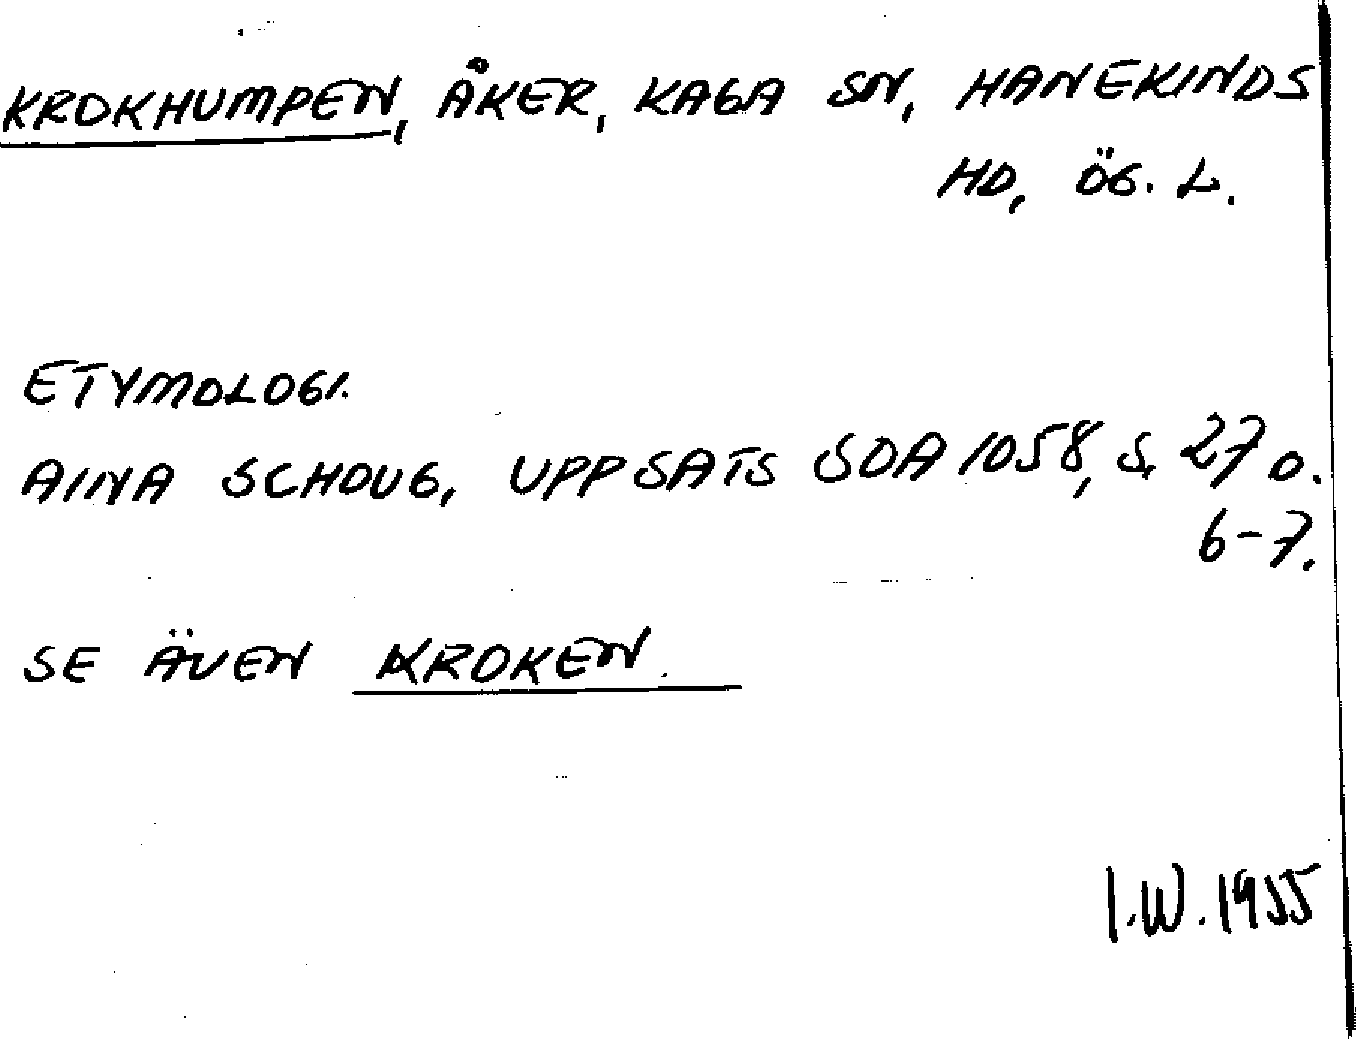 KROKHUMPEN, ÅKER, KAGA SN, HANEKINDS
HD, ÖG. L.
ETYMOLOGI.
AINA SCHOUG, UPPSATS SOA 1058, S. 27 o.
6-7.
SE ÄVEN KROKEN.
I.W. 1955